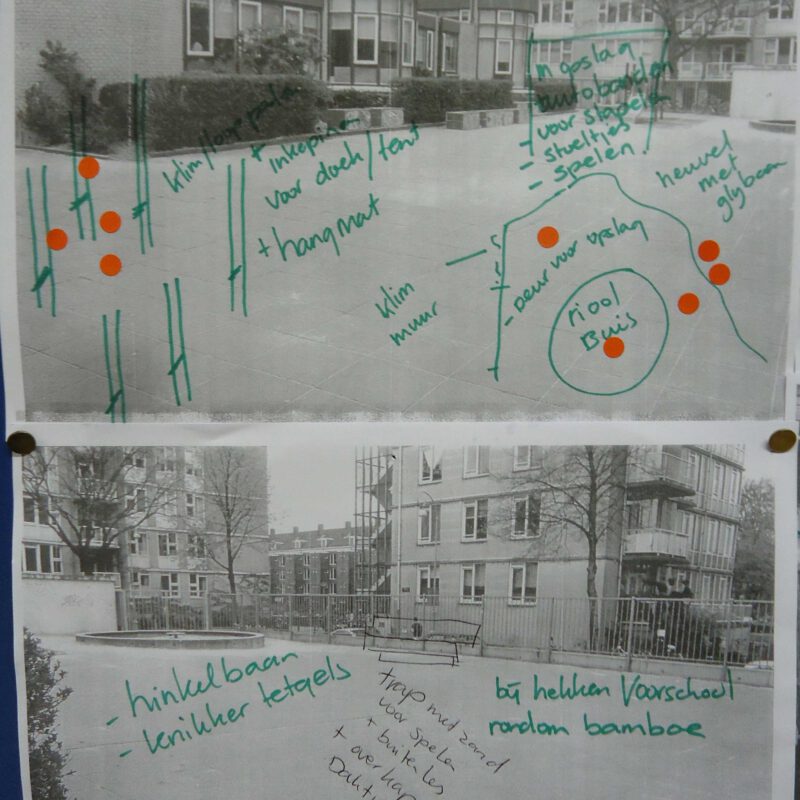 klim/loop palen
+ inkeping
voor doek/tent
+ hangmat
in opslag
voor stapelen
- stoeltjes
- spelen
heuvel
met
glybaan
klim
muur
- Deur voor opslag
riool
Buis
- hinkelbaan
- knikker tegels
trap met zand
voor spelen
+ buiten les
+ overkap
bij hekken Voorschool
rondom bamboe